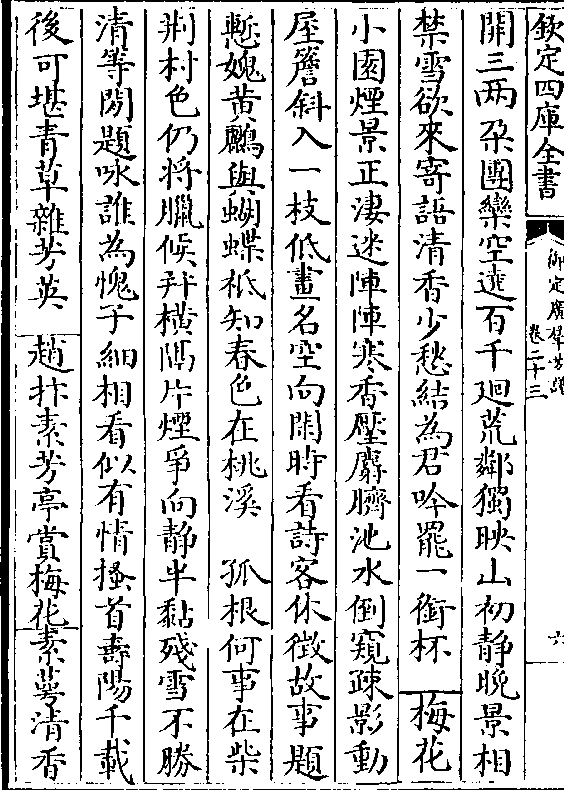 欽定四庫全書
御定廣羣芳譜
卷二十三
六
開三两朶團欒空遶百千廻荒鄰獨映山初静晚景相
禁雪欲來寄語清香少愁結為君吟罷一銜杯 梅花
小園煙景正凄迷陣陣寒香壓麝臍池水倒窺疎影動
屋簷斜入一枝低畫名空向閑時看詩客休徴故事題
慙媿黄鸝與蝴蝶秪知春色在桃溪 孤根何事在柴
荆村色仍将臘候并横隔片煙爭向静半黏殘雪不勝
清等閑題咏誰為愧子細相看似有情搔首壽陽千載
後可堪青草雜芳英 趙抃素芳亭賞梅花素萼清香